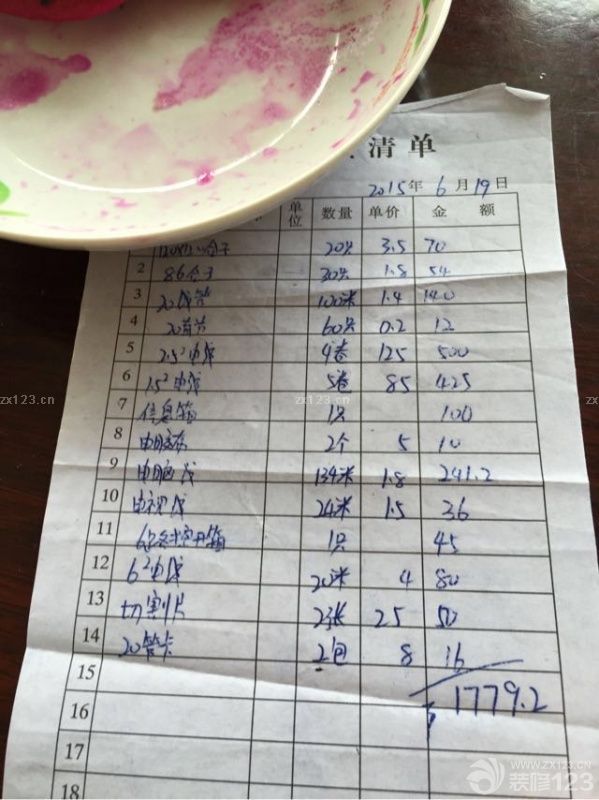 清单
2015年6月19日
单位 数量 单价 金额
盒子 20只 3.5 70
2 86合子 30只 1.8 54
3 20线管 100米 1.4 140
4 20直节 60只 0.2 12
5 2.5²电线 4卷 125 500
6 1.5²电线 5卷 85 425
7 信息箱 1只 100
8 电胶布 2个 5 10
9 电脑线 134米 1.8 241.2
10 电视线 24米 1.5 36
11 空开箱 1只 45
12 6²电线 20米 4 80
13 切割片 2张 25 50
14 20管卡 2包 8 16
15
16 1779.2
17
18
zx123.cn
zx123.cn
zx123.cn
WWW.ZX123.CN
装修123